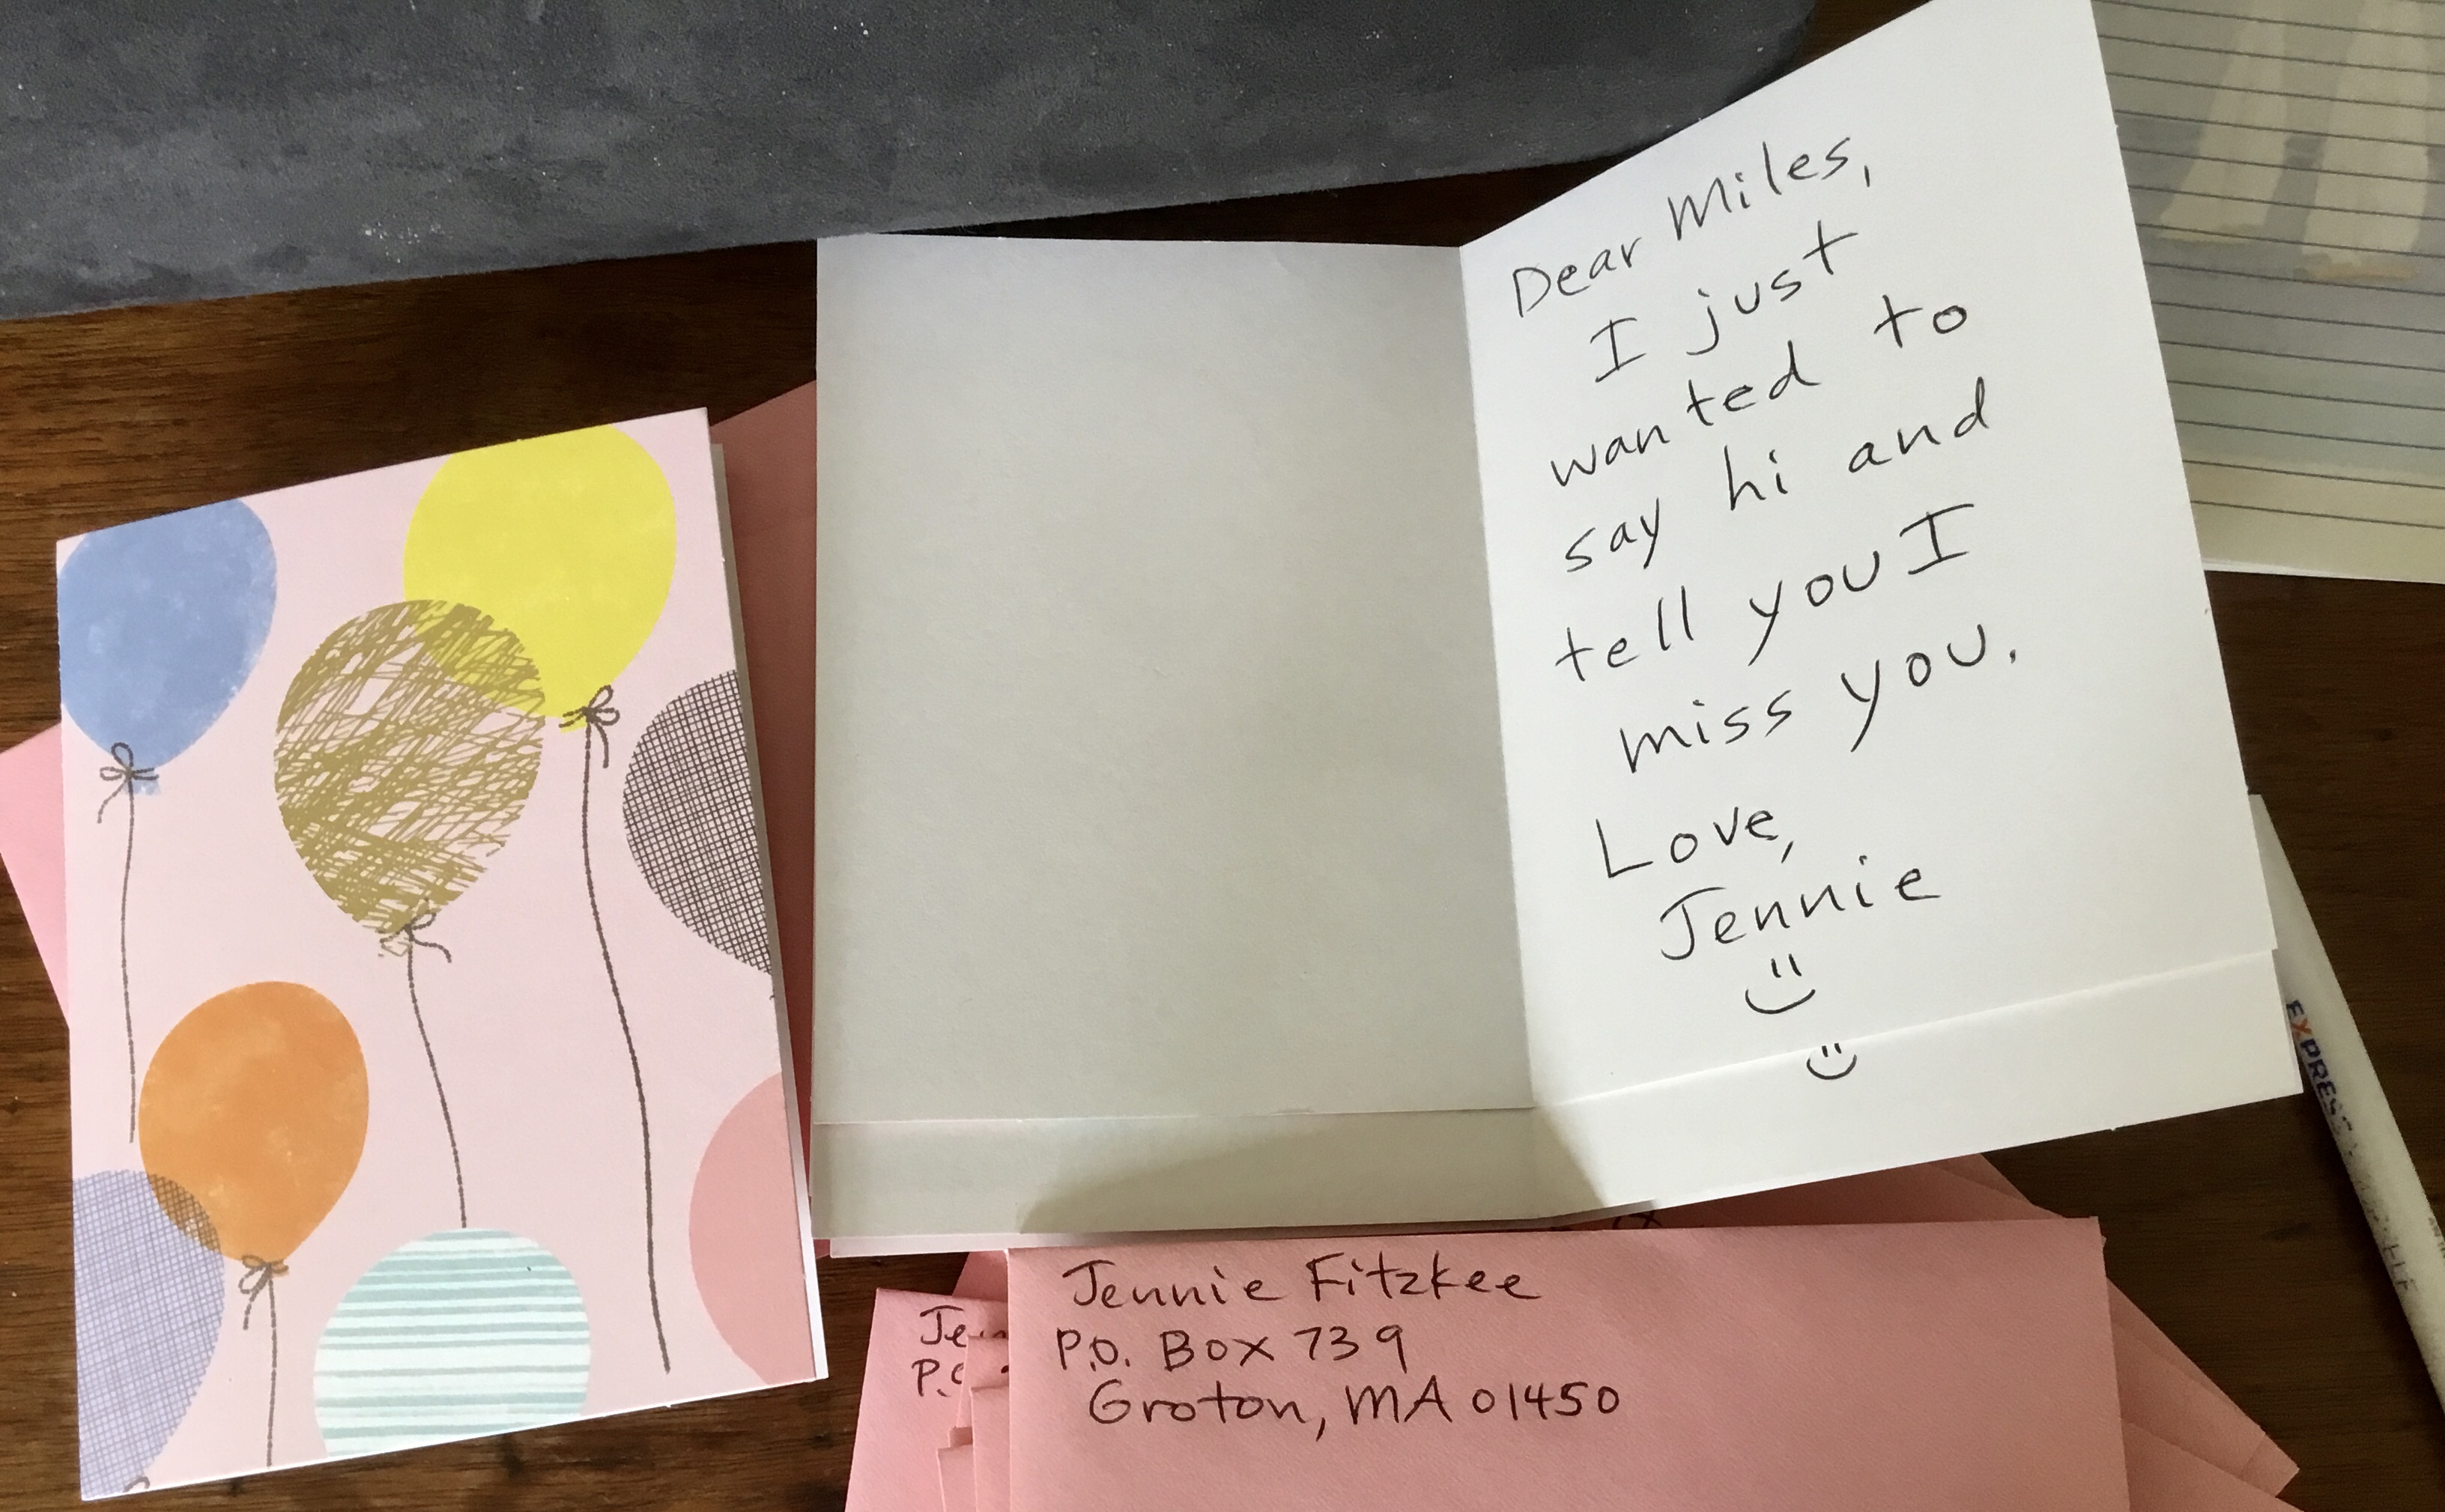 Dear Miles,
I just
wanted to
say hi and
tell you I
miss you.
Love,
Jennie
Jennie Fitzkee
P.O. Box 739
Groton, MA 01450
Je
P.
EXPRESS